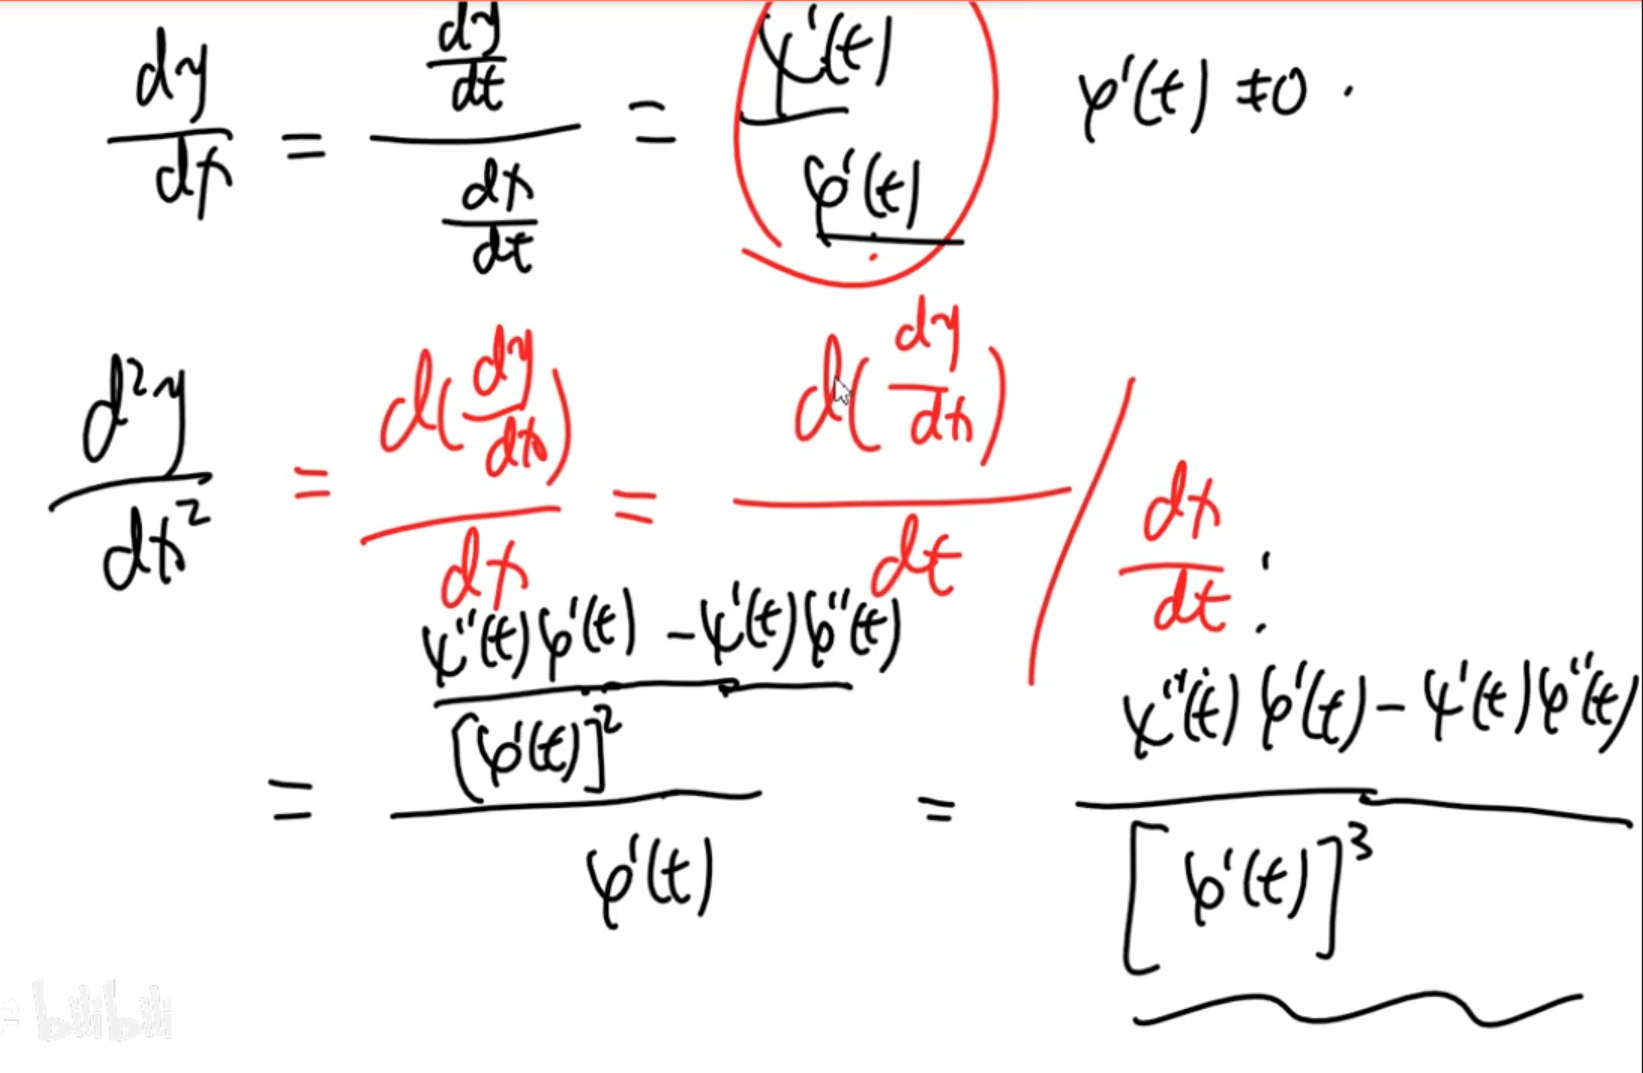 dy/dx = (dy/dt)/(dx/dt) = ψ'(t)/φ'(t)   φ'(t) ≠ 0 .
d²y/dx² = d(dy/dx)/dx = d(dy/dx)/dt / dx/dt :
= ((ψ''(t)φ'(t) - ψ'(t)φ''(t))/[φ'(t)]²)/φ'(t) = (ψ''(t)φ'(t) - ψ'(t)φ''(t))/[φ'(t)]³
bilibili